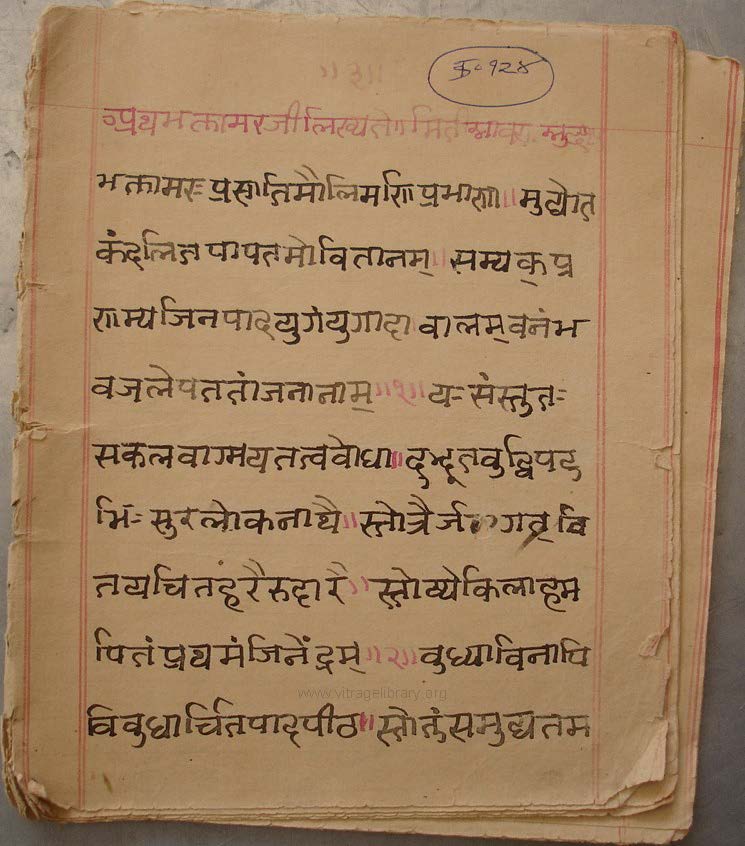 ॥१॥
क्र॰ १२४
प्रथमक्तामरजीलिख्यते
भक्तामरः प्रणतिमौलिमणिप्रभाणा॥ मुद्योत
कंदलितपापतमोवितानम्॥ सम्यक् प्र
णम्यजिनपादयुगंयुगादा वालम्वनंभ
वजलेपततांजनानाम्॥१॥ यः संस्तुतः
सकलवाग्मयतत्ववोधा॥ दुद्भूतवुद्धिपटु
भिः सुरलोकनाथै॥ स्तोत्रैर्जगत् त्रि
तयचितहरैरुदारै॥ स्तोष्येकिलाहम
पितंप्रथमंजिनेंद्रम्॥२॥ वुध्याविनापि
विवुधार्चितपादपीठ॥ स्तोतुंसमुद्यतम
www.vitragelibrary.org